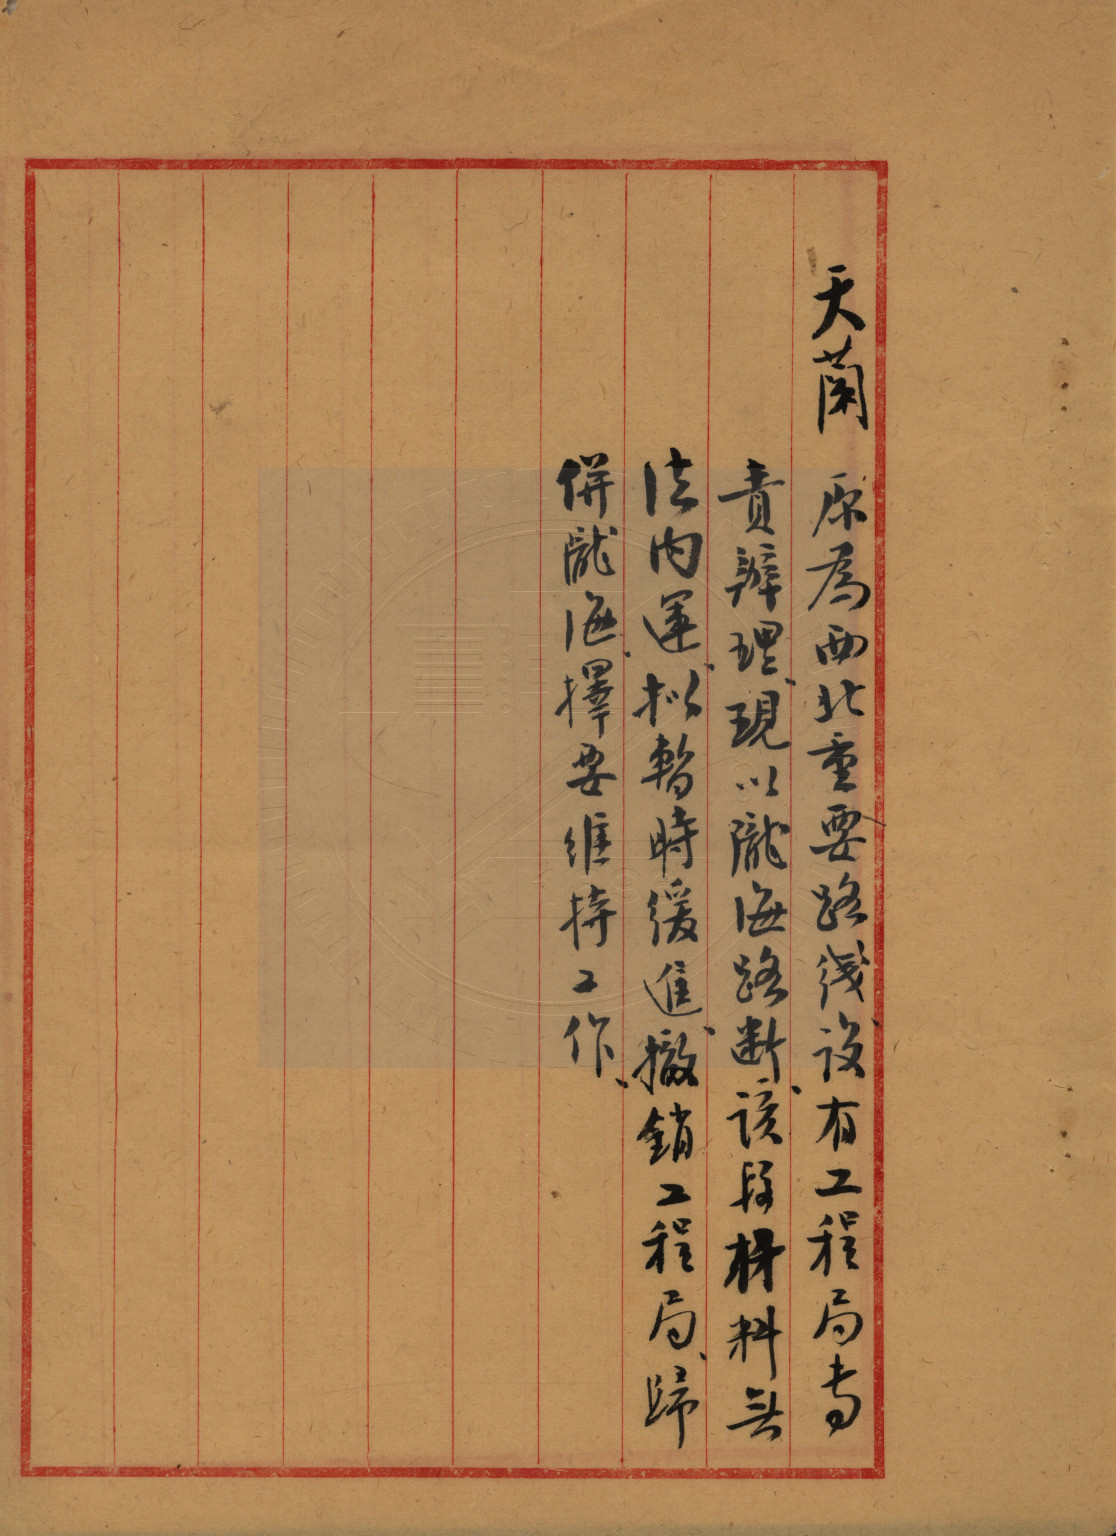 天蘭　原為西北重要路线、設有工程局专
責辦理、現以隴海路断、該段材料無
法内運、拟暫時緩進、撤銷工程局、歸
併隴海、擇要維持工作、